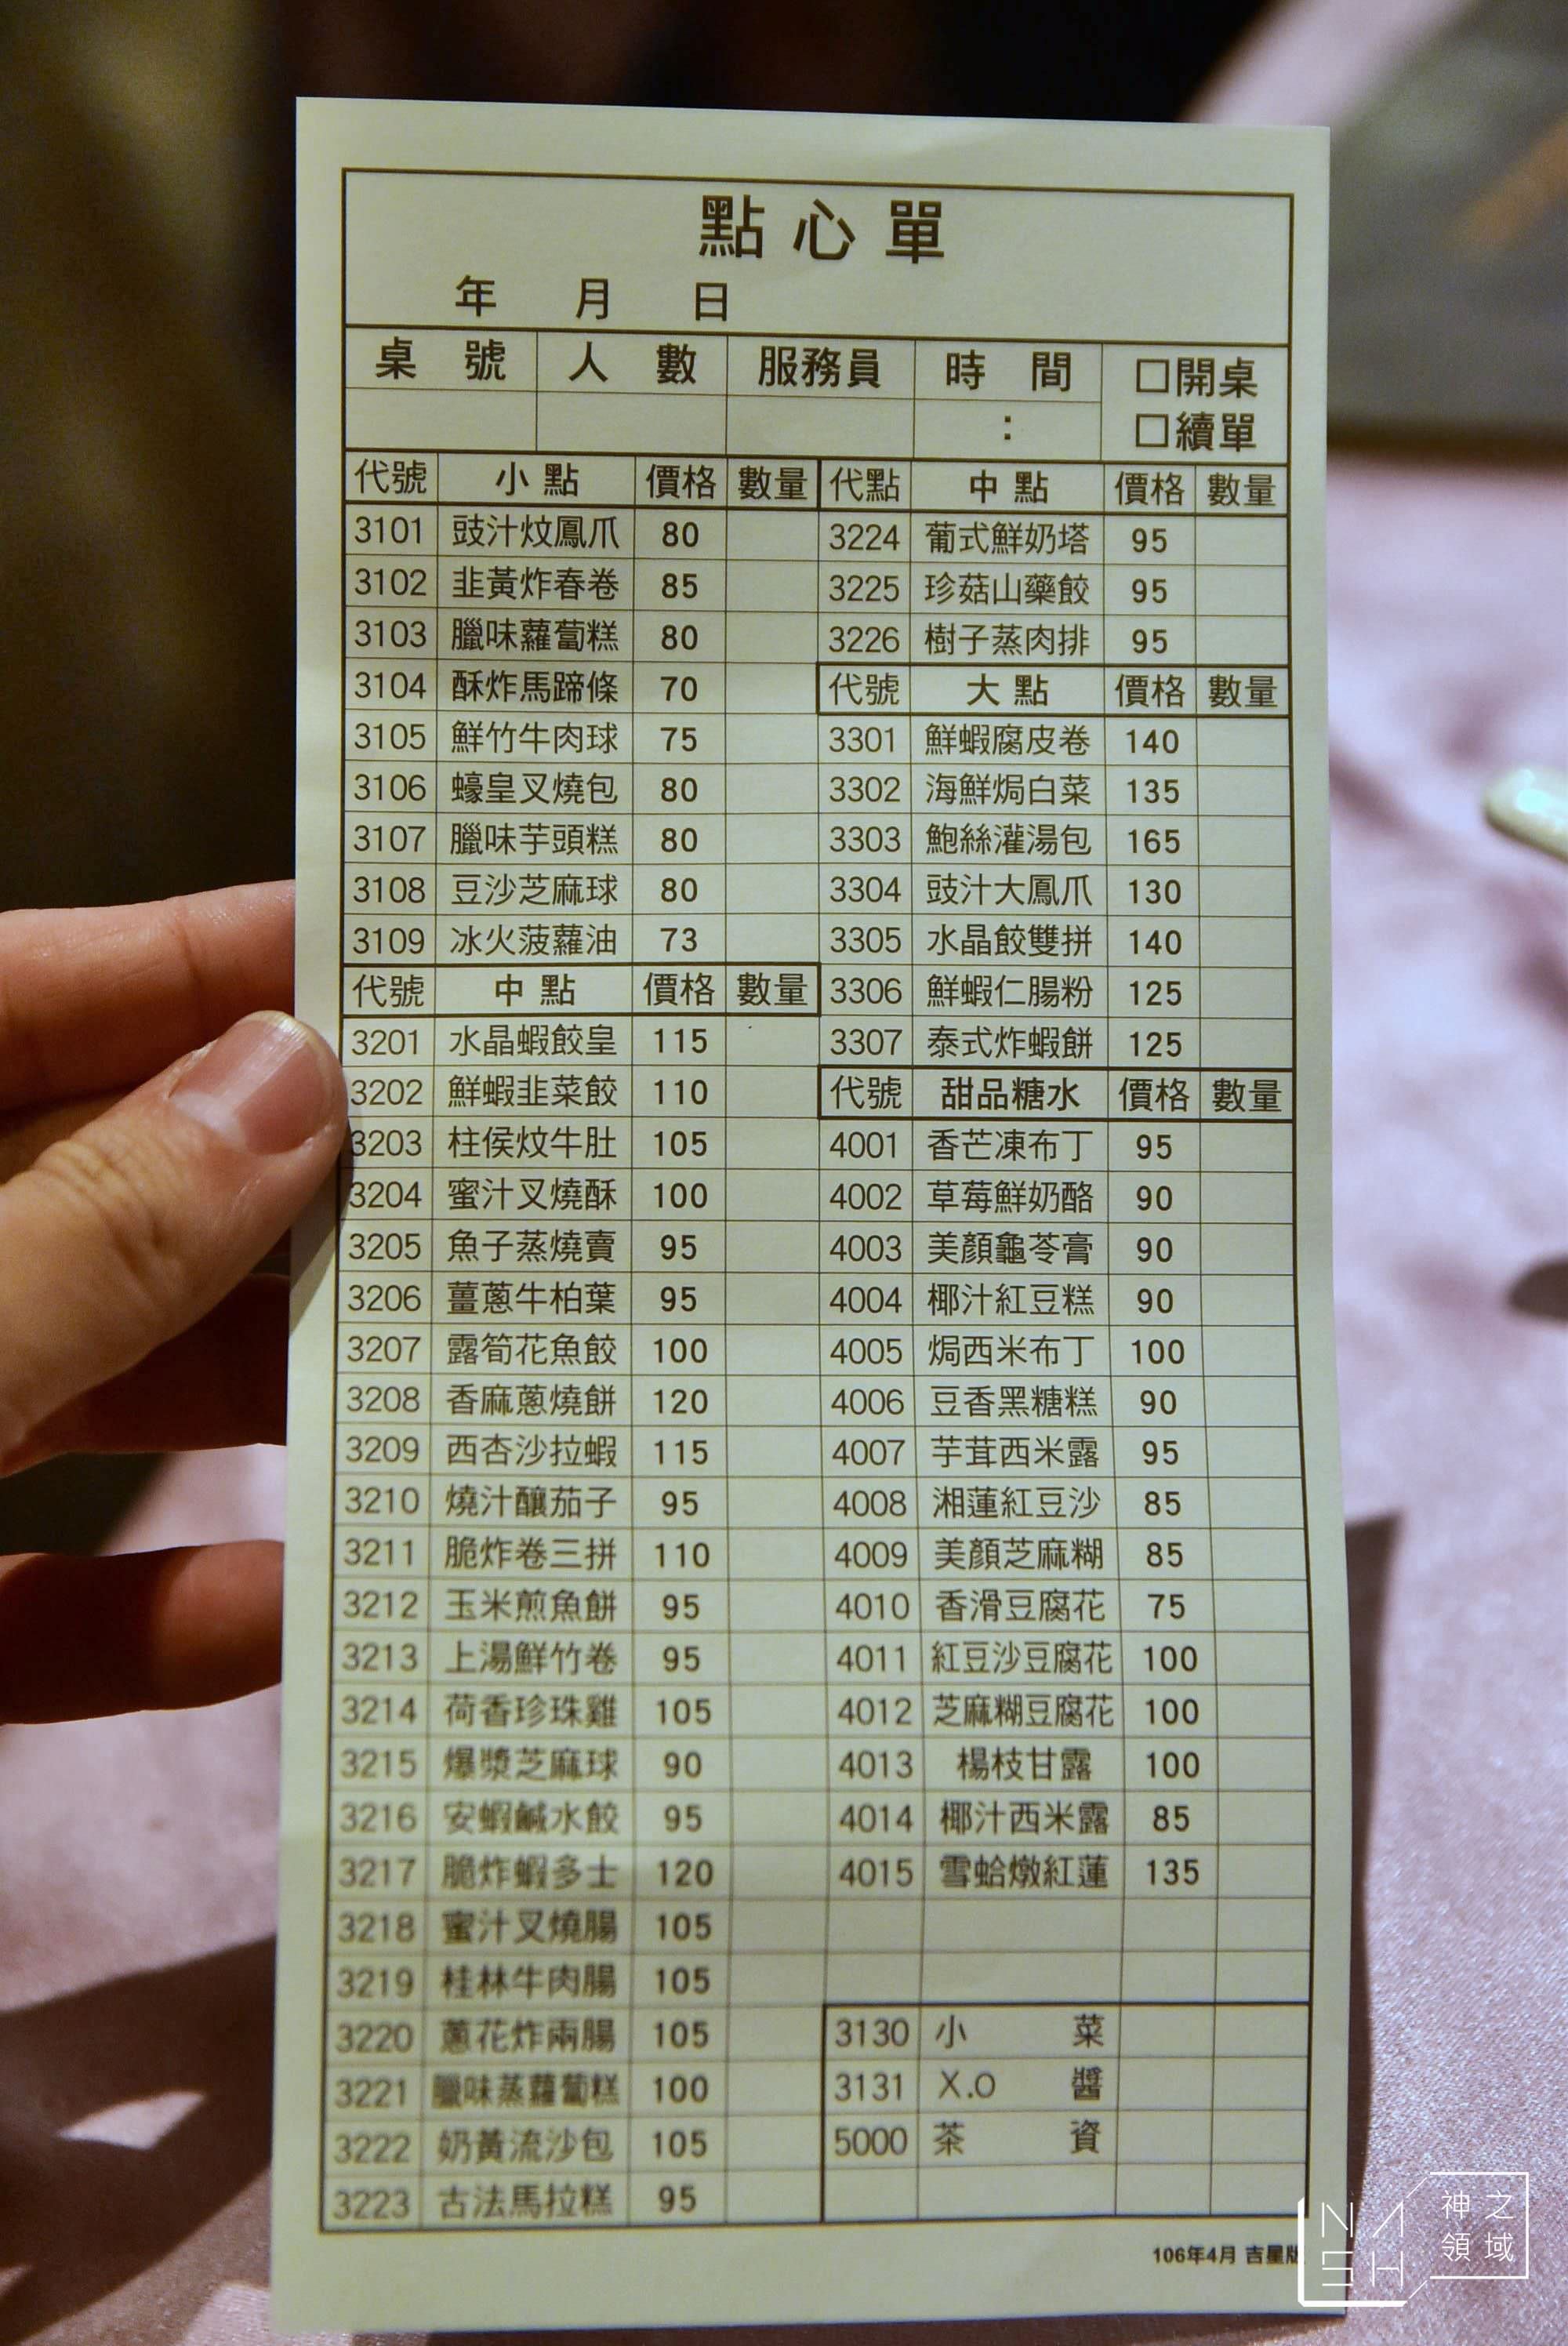 點心單
年 月 日
桌號 人數 服務員 時間 □開桌
: □續單
代號 小點 價格 數量
3101 豉汁炆鳳爪 80
3102 韭黃炸春卷 85
3103 臘味蘿蔔糕 80
3104 酥炸馬蹄條 70
3105 鮮竹牛肉球 75
3106 蠔皇叉燒包 80
3107 臘味芋頭糕 80
3108 豆沙芝麻球 80
3109 冰火菠蘿油 73
代號 中點 價格 數量
3201 水晶蝦餃皇 115
3202 鮮蝦韭菜餃 110
3203 柱侯炆牛肚 105
3204 蜜汁叉燒酥 100
3205 魚子蒸燒賣 95
3206 薑蔥牛柏葉 95
3207 露筍花魚餃 100
3208 香麻蔥燒餅 120
3209 西杏沙拉蝦 115
3210 燒汁釀茄子 95
3211 脆炸卷三拼 110
3212 玉米煎魚餅 95
3213 上湯鮮竹卷 95
3214 荷香珍珠雞 105
3215 爆漿芝麻球 90
3216 安蝦鹹水餃 95
3217 脆炸蝦多士 120
3218 蜜汁叉燒腸 105
3219 桂林牛肉腸 105
3220 蔥花炸兩腸 105
3221 臘味蒸蘿蔔糕 100
3222 奶黃流沙包 105
3223 古法馬拉糕 95
代點 中點 價格 數量
3224 葡式鮮奶塔 95
3225 珍菇山藥餃 95
3226 樹子蒸肉排 95
代號 大點 價格 數量
3301 鮮蝦腐皮卷 140
3302 海鮮焗白菜 135
3303 鮑絲灌湯包 165
3304 豉汁大鳳爪 130
3305 水晶餃雙拼 140
3306 鮮蝦仁腸粉 125
3307 泰式炸蝦餅 125
代號 甜品糖水 價格 數量
4001 香芒凍布丁 95
4002 草莓鮮奶酪 90
4003 美顏龜苓膏 90
4004 椰汁紅豆糕 90
4005 焗西米布丁 100
4006 豆香黑糖糕 90
4007 芋茸西米露 95
4008 湘蓮紅豆沙 85
4009 美顏芝麻糊 85
4010 香滑豆腐花 75
4011 紅豆沙豆腐花 100
4012 芝麻糊豆腐花 100
4013 楊枝甘露 100
4014 椰汁西米露 85
4015 雪蛤燉紅蓮 135
3130 小菜
3131 X.O醬
5000 茶資
106年4月 吉星版
NASH 神之領域